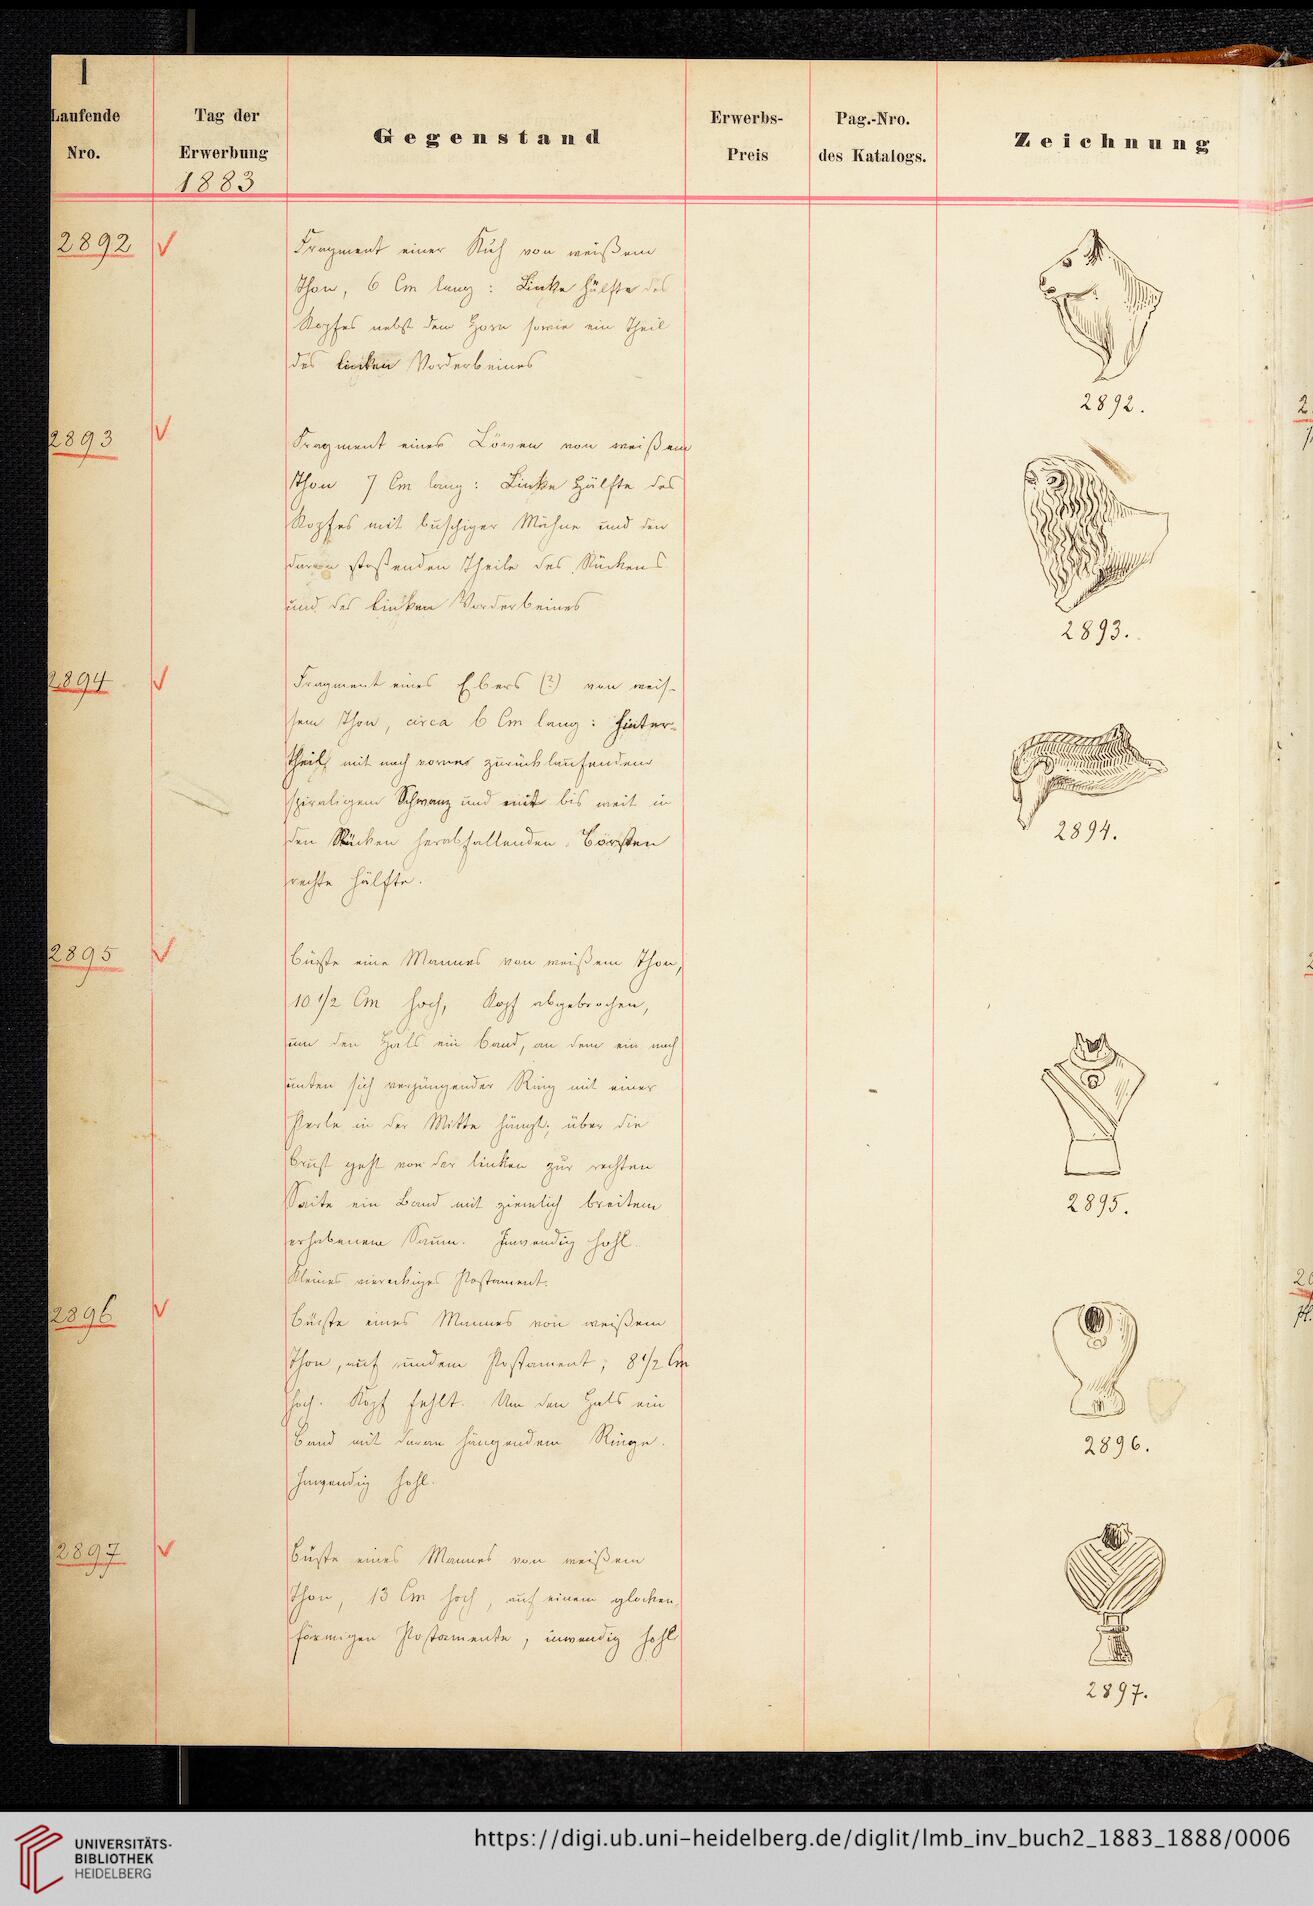 1
Laufende
Nro.
Tag der
Erwerbung
1883
Gegenstand
Erwerbs-
Preis
Pag.-Nro.
des Katalogs.
Zeichnung
2892
Fragment einer Kuh von weißem
Thon, 6 Cm lang: Linke Hälfte des
Kopfes nebst dem Horn sowie ein Theil
des linken Vorderbeines
2892.
2893
Fragment eines Löwen von weißem
Thon 7 Cm lang: Linke Hälfte des
Kopfes mit buschiger Mähne und den
daran stoßenden Theile des Rückens
und des linken Vorderbeines
2893.
2894
Fragment eines Ebers (?) von weis-
sem Thon, circa 6 Cm lang: Hinter-
theil, mit nach vorne zurücklaufendem
spiraligem Schwanz und mit bis weit in
den Rücken herabfallenden Borsten
rechte Hälfte.
2894.
2895
Büste eine Mannes von weißem Thon,
10 1/2 Cm hoch, Kopf abgebrochen,
um den Hals ein Band, an dem ein nach
unten sich verjüngender Ring mit einer
Perle in der Mitte hängt; über die
Brust geht von der linken zur rechten
Seite ein Band mit ziemlich breitem
erhabenem Saum. Inwendig hohl.
Kleines viereckiges Postament.
2895.
2896
Büste eines Mannes von weißem
Thon, auf rundem Postament; 8 1/2 Cm
hoch. Kopf fehlt. Um den Hals ein
Band mit daran hängendem Ringe.
Inwendig hohl.
2896.
2897
Büste eines Mannes von weißem
Thon, 13 Cm hoch, auf einem glocken-
förmigen Postamente, inwendig hohl
2897.
UNIVERSITÄTS-
BIBLIOTHEK
HEIDELBERG
https://digi.ub.uni-heidelberg.de/diglit/lmb_inv_buch2_1883_1888/0006